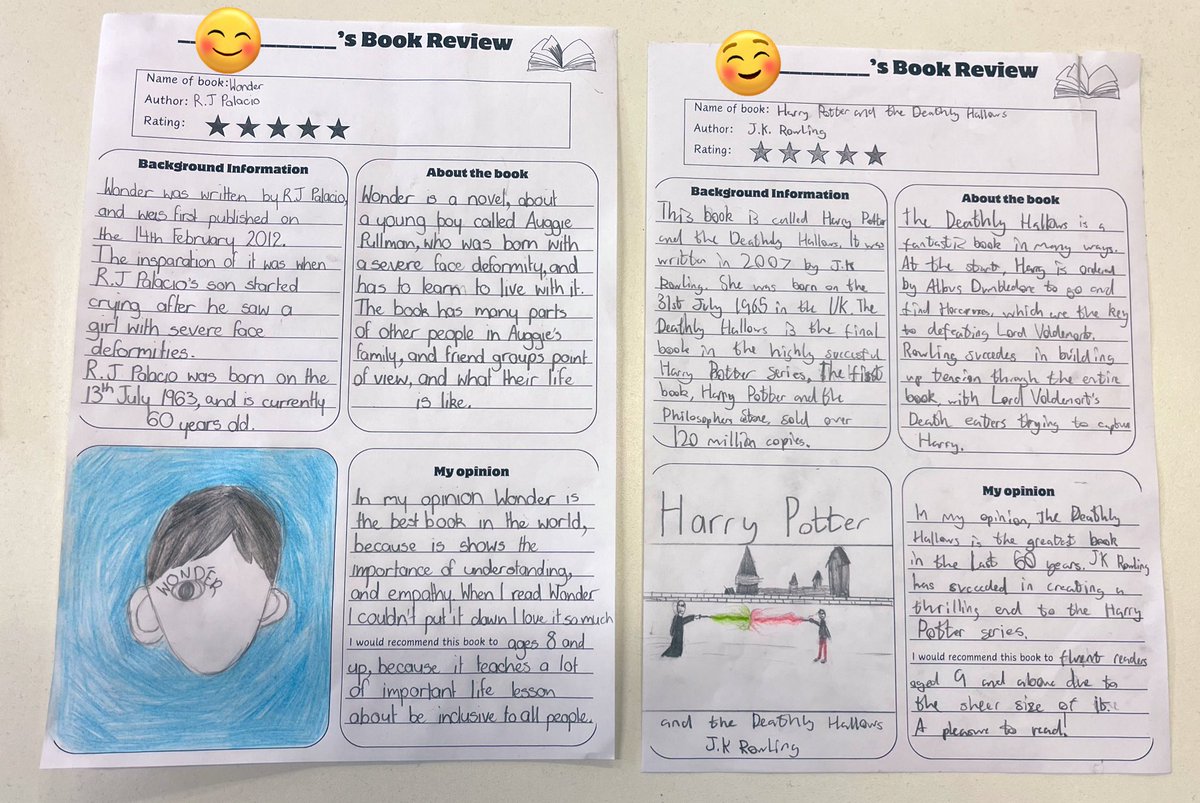 ___________'s Book Review
Name of book: Wonder
Author: R.J Palacio
Rating:
Background Information
Wonder was written by R.J Palacio,
and was first published on
the 14th February 2012.
The insparation of it was when
R.J Palacio's son started
crying after he saw a
girl with severe face
deformities.
R.J Palacio was born on the
13th July 1963, and is currently
60 years old.
About the book
Wonder is a novel, about
a young boy called Auggie
Pullman, who was born with
a severe face deformity, and
has to learn to live with it.
The book has many parts
of other people in Auggie's
family, and friend groups point
of view, and what their life
is like.
WONDER
My opinion
In my opinion Wonder is
the best book in the world,
because is shows the
importance of understanding,
and empathy. When I read Wonder
I couldn't put it down I love it so much
I would recommend this book to ages 8 and
up, because it teaches a lot
of important life lesson
about be inclusive to all people.
_________'s Book Review
Name of book: Harry Potter and the Deathly Hallows
Author: J.K. Rowling
Rating:
Background Information
This book is called Harry Potter
and the Deathly Hallows. It was
written in 2007 by J.K
Rowling. She was born on the
31st July 1965 in the UK. The
Deathly Hallows is the final
book in the highly succesful
Harry Potter series. The first
book, Harry Potter and the
Philosophers Stone, sold over
120 million copies.
About the book
The Deathly Hallows is a
fantastic book in many ways.
At the start, Harry is ordered
by Albus Dumbledore to go and
find Horcruxes, which are the key
to defeating Lord Voldemort.
Rowling succedes in building
up tension through the entire
book, with Lord Voldemort's
Death eaters trying to capture
Harry.
Harry Potter
and the Deathly Hallows
J.K Rowling
My opinion
In my opinion, The Deathly
Hallows is the greatest book
in the last 60 years. JK Rowling
has succeded in creating a
thrilling end to the Harry
Potter series.
I would recommend this book to fluent readers
aged 9 and above due to
the sheer size of it.
A pleasure to read!